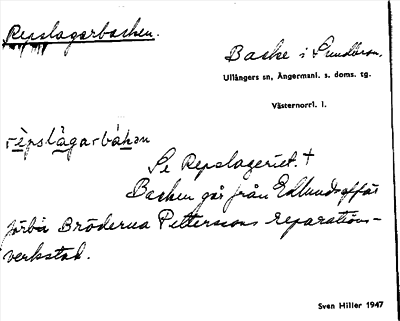 Repslagarbacken.
Backe i Sundbron,
Ullångers sn, Ångermanl. s. doms. tg.
Västernorrl. l.
rèpslàgarbákən
Se Repslageriet.†
Backen går från Edlundsaffär
förbi Bröderna Petterssons reparations-
verkstad.
Sven Hiller 1947